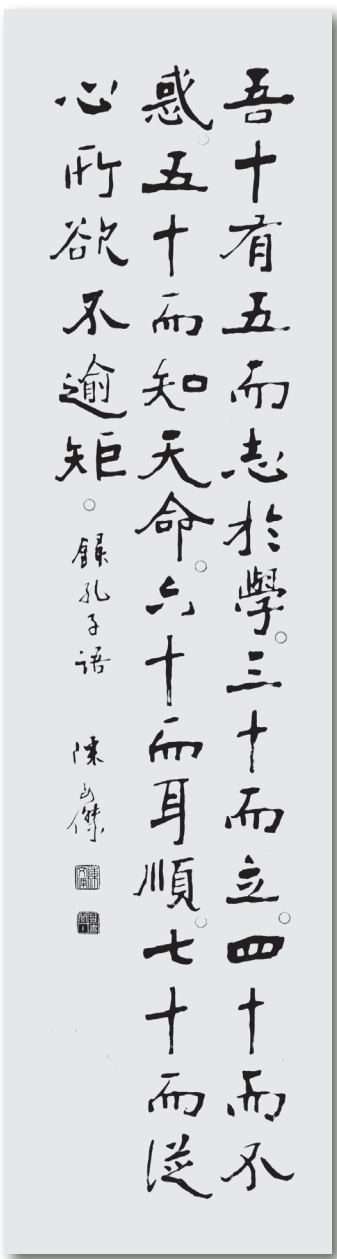 吾十有五而志於學。三十而立。四十而不
惑。五十而知天命。六十而耳順。七十而從
心所欲不逾矩。錄孔子語 陳文傑